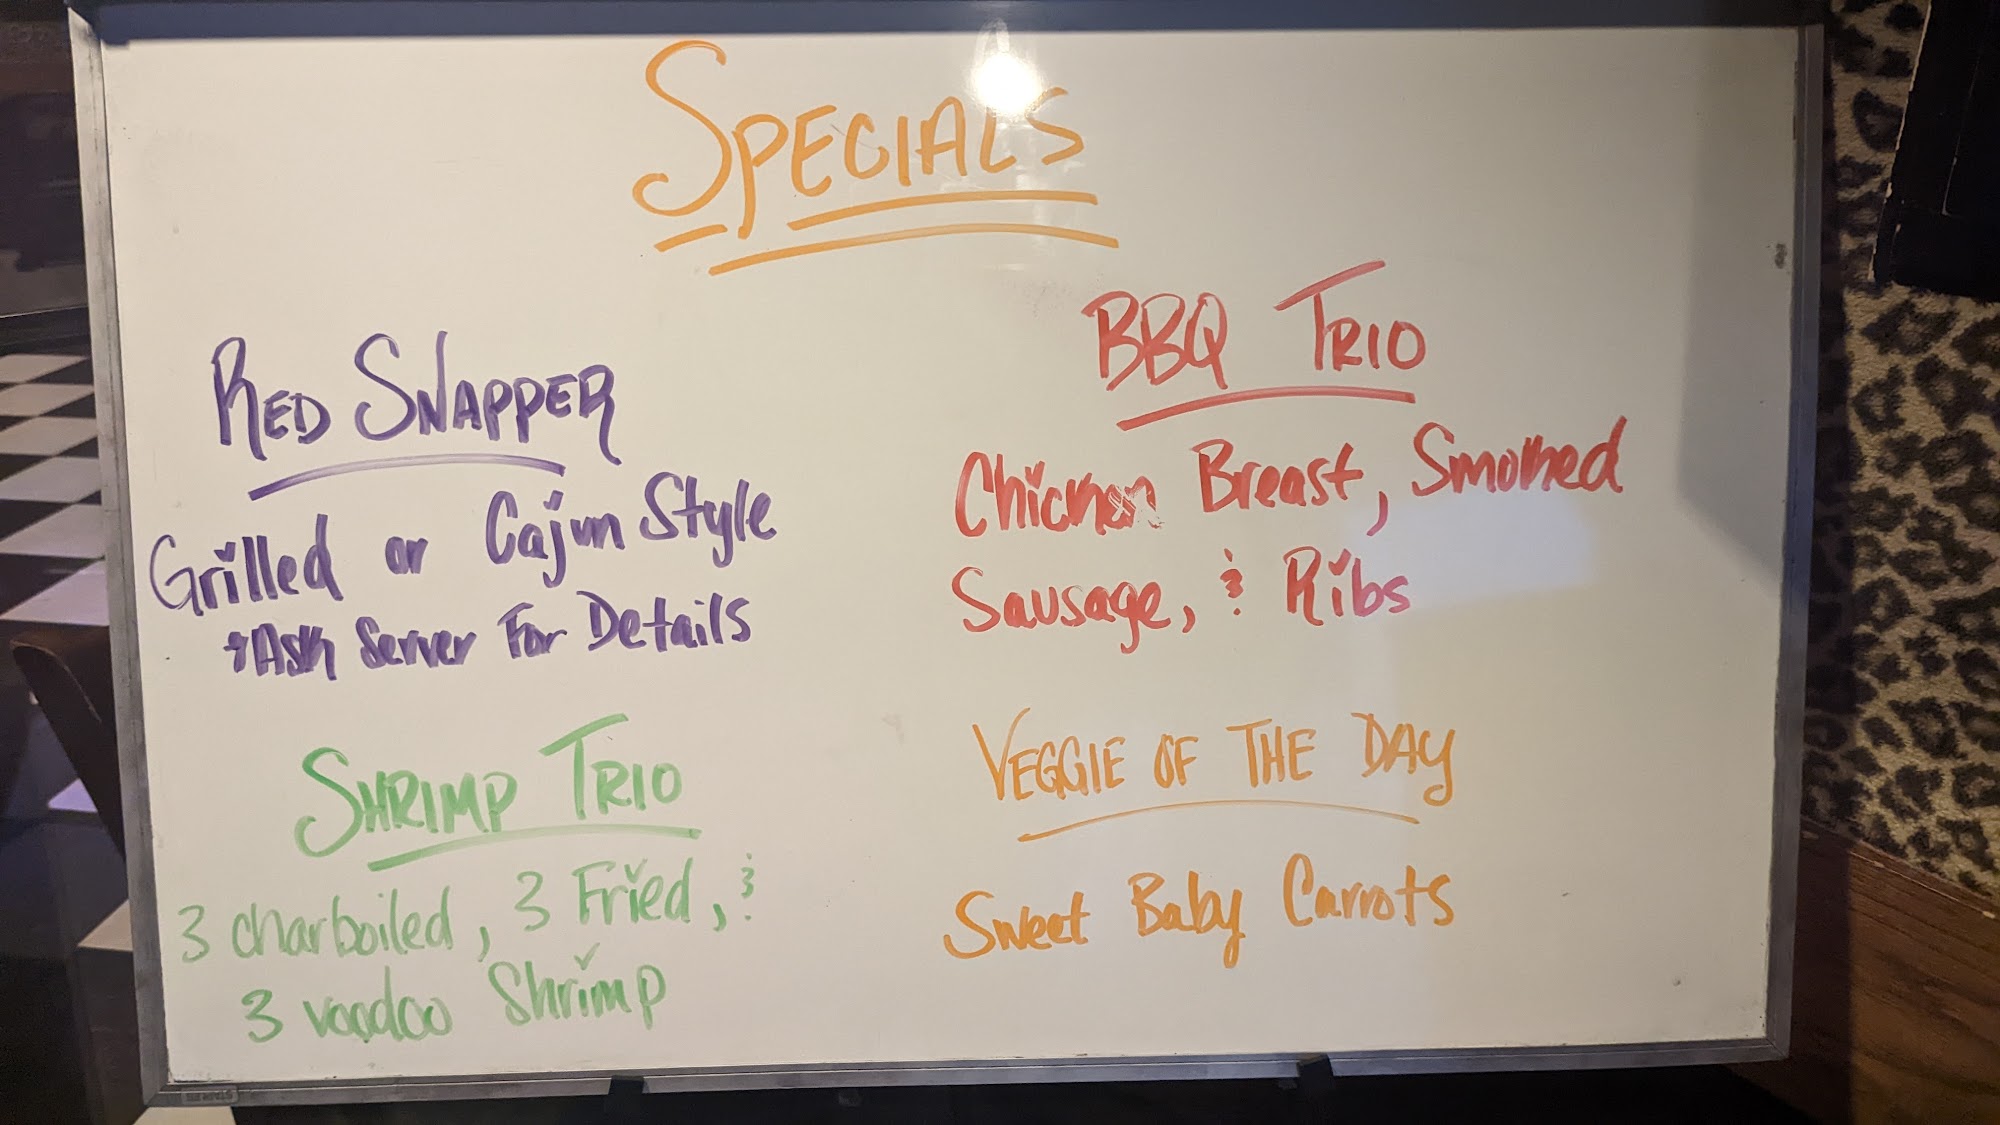 SPECIALS
RED SNAPPER
Grilled or Cajun Style
*Ask Server For Details
BBQ TRIO
Chicken Breast, Smoked
Sausage, & Ribs
SHRIMP TRIO
3 charboiled, 3 Fried, &
3 voodoo Shrimp
VEGGIE OF THE DAY
Sweet Baby Carrots
STAPLES